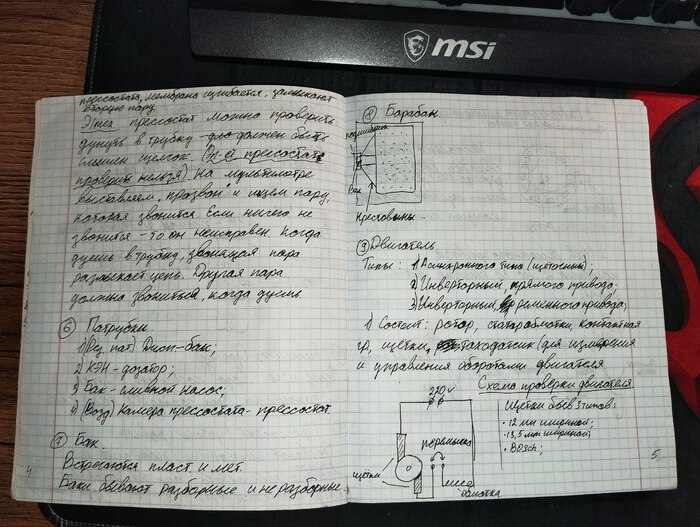 msi
прессостата, мембрана изгибается, замыкают
вторую пару.
Э/мех прессостат можно проверить
дунуть в трубку должен быть
слышен щелчок. (Эл-ый прессостат
проверить нельзя) На мультиметре
выставляем "прозвон" и ищем пару,
которая звонится если ничего не
звонится - то он неисправен. Когда
дуешь в трубку, звонящая пара
размыкает цепь. Другая пара
должна звониться, когда дуешь.
6 Патрубки.
1) (Рез. пат) Дисп-бак;
2 КЭН - дозатор;
3 Бак - сливной насос;
4) (Возд) Камера прессостата - прессостат.
7 Бак.
Встречаются пласт. и мет.
Баки бывают разборные и не разборные
4
8 Барабан
подшипник
Вал
Крестовины
9 Двигатель.
Типы: 1) Асинхронного типа (щёточный);
2) Инверторный, прямого привода;
3) Инверторный, ременного привода;
1) Состоит: ротор, статарабмотки, контактная
гр, щётки, таходатчик (для измерения
и управления оборотами двигателя.
220 v
Схема проверки двигателя
Щётки быв 3 типов:
• 12 мм шириной;
• 13,5 мм шириной;
• BOSCH;
перемычка
щётки
обмотка
5